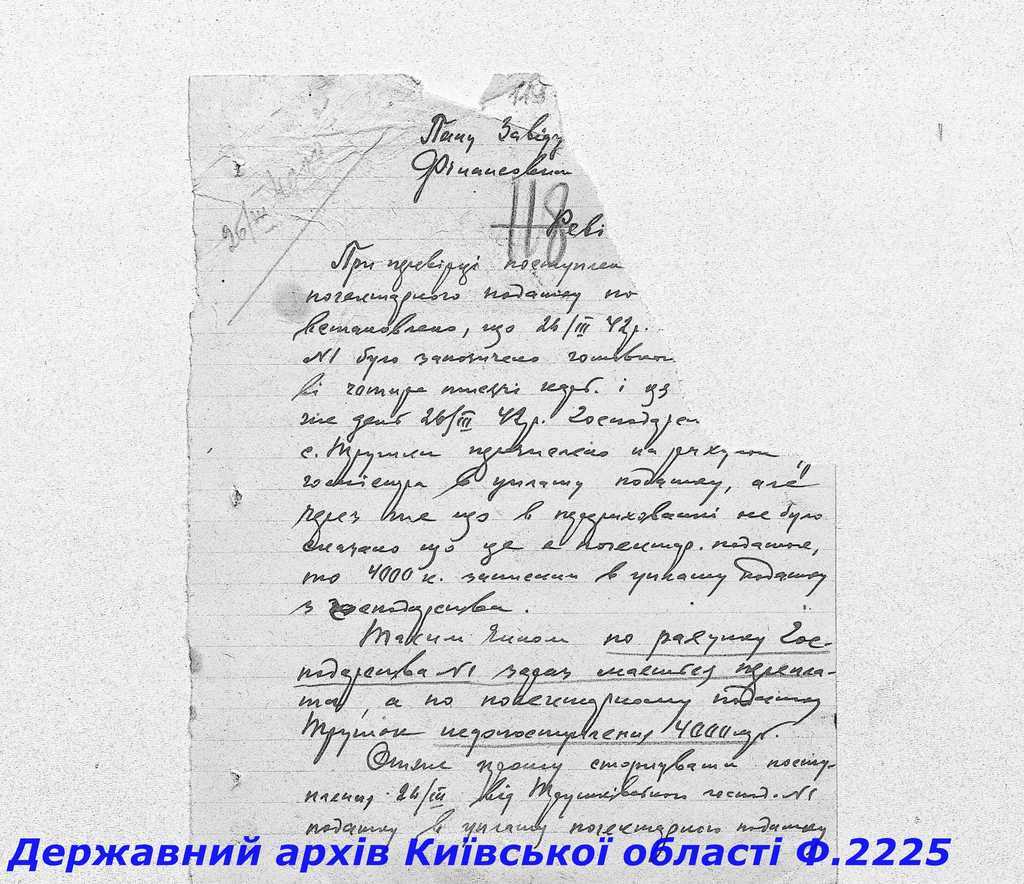 119
Пану Завіду
Фінансовим
118
Реві
26/III
При перевірці поступлен
погектарного податку по
встановлено, що 26/III 42р.
N1 було заготівкою
ві чотири тисячі карб. і ця
же день 26/III 42р. Господарст
с. Трушки перечислено на рахунок
в уплату податку, але
через те що в не було
сказано що це є погектар. податок,
то 4000 к. записали в уплату податку
з господарства.
Таким чином по рахунку Гос-
подарства N1 зараз мається перепла-
та, а по погектарному податку
Трушок недопоступлення 4000 крб.
Отже прошу сторнувати посту-
плення 26/III від Трушківського господ. N1
податку в уплату погектарного податку
Державний архів Київської області Ф.2225